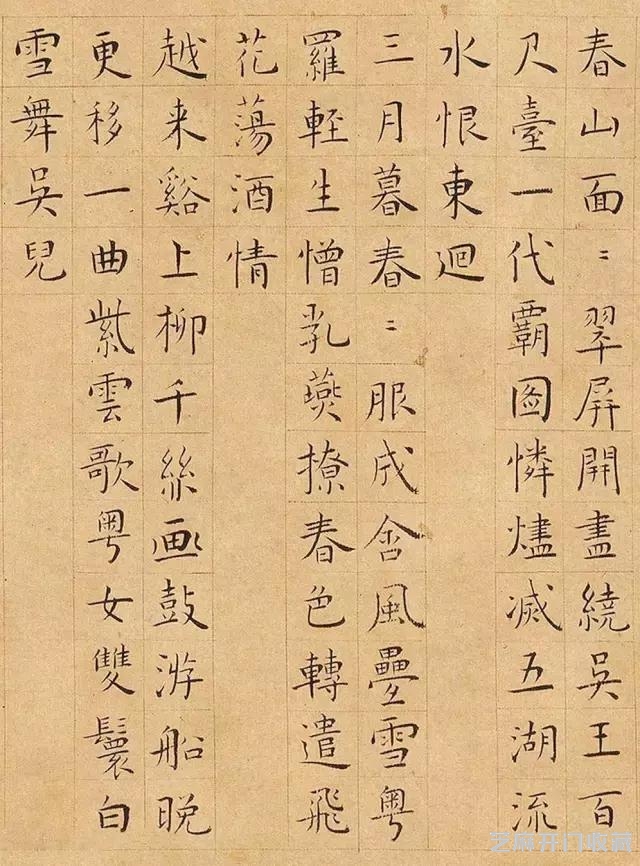 春山面〻翠屏開盡繞吳王百
尺臺一代覇圖憐燼滅五湖流
水恨東迴
三月暮春〻服成含風疊雪粵
羅輕生憎乳燕撩春色轉遣飛
花蕩酒情
越来谿上柳千絲画鼓游船晚
更移一曲紫雲歌粵女雙鬟白
雪舞吳兒
芝麻开门收藏